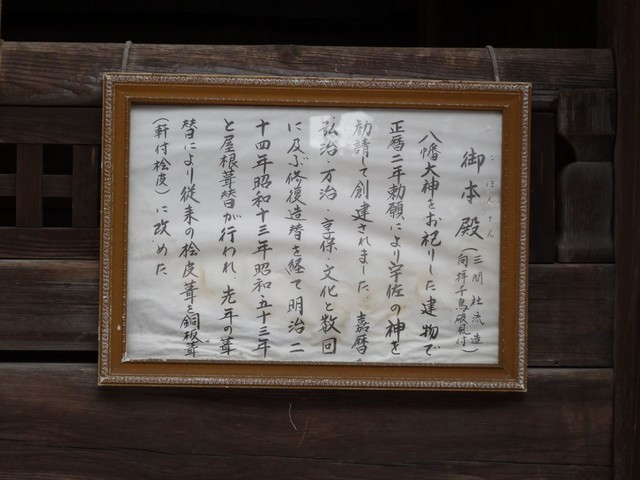 御本殿
ごほんでん
(三間社流造
向拝千鳥破風付)
八幡大神をお祀りした建物で
正暦二年勅願により宇佐の神を
勧請して創建されました。嘉暦・
弘治・万治・享保・文化と数回
に及ぶ修復造替を経て明治二
十四年昭和十三年昭和五十三年
と屋根葺替が行われ、先年の葺
替により従来の桧皮葺を銅板葺
(軒付桧皮)に改めた